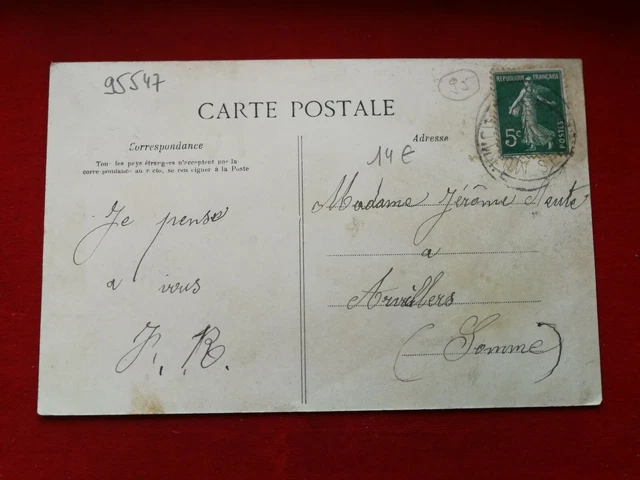 95547
95
CARTE POSTALE
REPUBLIQUE FRANÇAISE
5c
POSTES
Correspondance
Tous les pays étrangers n'acceptent pas la
correspondance au recto, se renseigner à la Poste
Adresse
14 €
Je pense
a vous
J. R.
Madame Jérôme
a
Arvillers
(Somme)